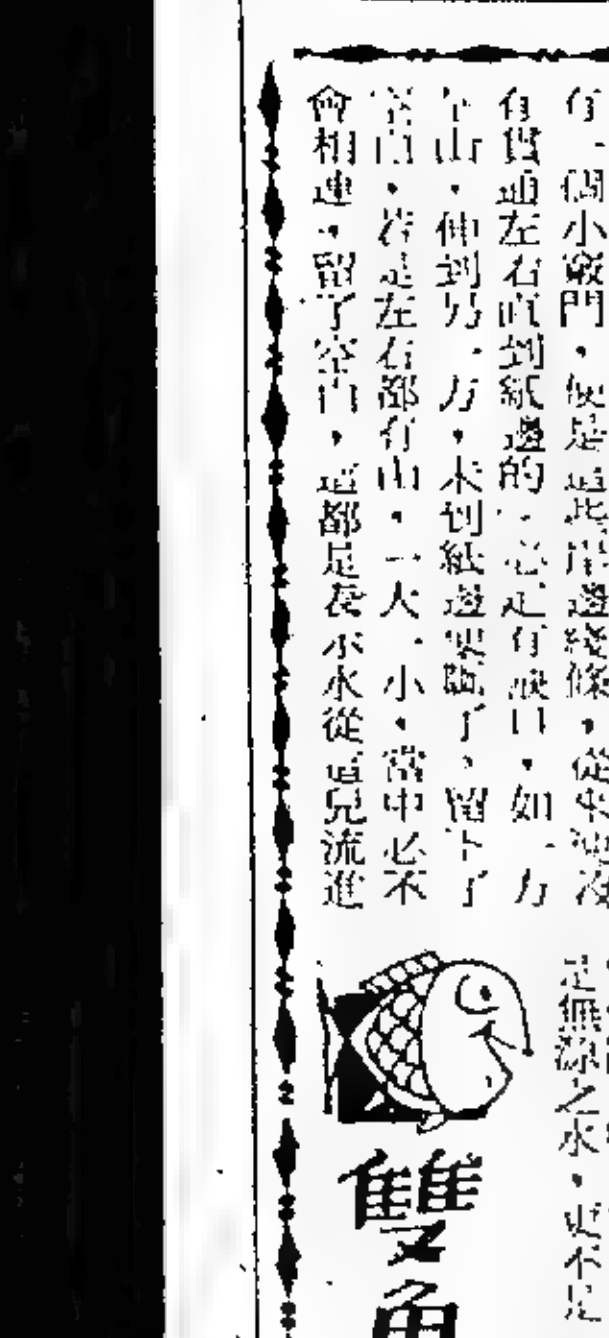 有一個小竅門，便是這些岸邊綫條，從來沒沒
有貫通左右直到紙邊的，必定有缺口，如一方
有山，伸到另一方，未到紙邊便斷了，留下了
空白，若是左右都有山，一大一小，當中必不
會相連，留了空白，這都是表示水從這兒流進
是無源之水，更不是
雙角